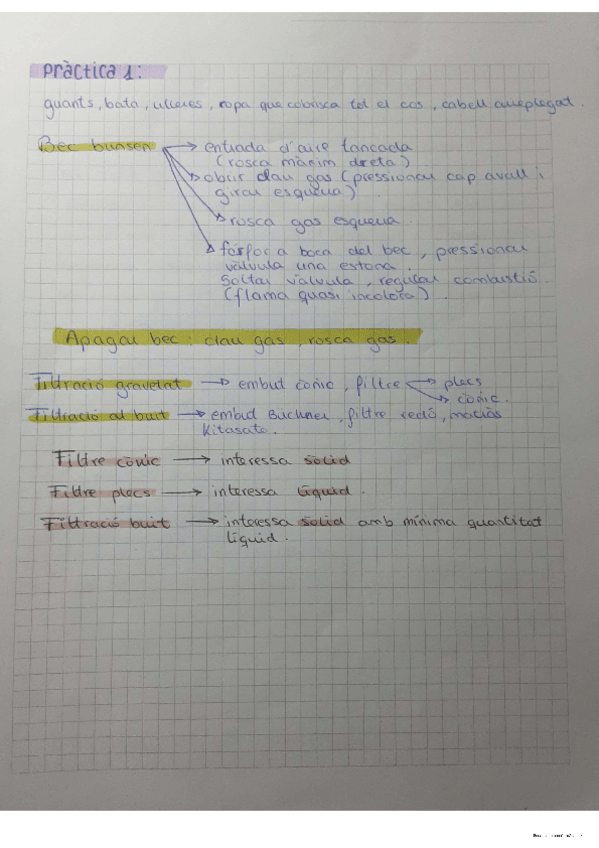 Pràctica 1:
guants, bata, ulleres, ropa que cobrisca tot el cos, cabell arreplegat.
Bec bunsen → entrada d'aire tancada
(rosca màxim dreta)
→ obrir clau gas (pressionar cap avall i
girar esquerra)
→ rosca gas esquerra
→ fósfor a boca del bec, pressionar
vàlvula una estona.
Soltar vàlvula, regular combustió
(flama quasi incolora)
Apagar bec: clau gas, rosca gas.
Filtració gravetat → embut cònic, filtre → plecs
→ cònic.
Filtració al buit → embut Büchner, filtre redó, matràs
Kitasato.
Filtre cònic → interessa sòlid
Filtre plecs → interessa líquid.
Filtració buit → interessa sòlid amb mínima quantitat
líquid.